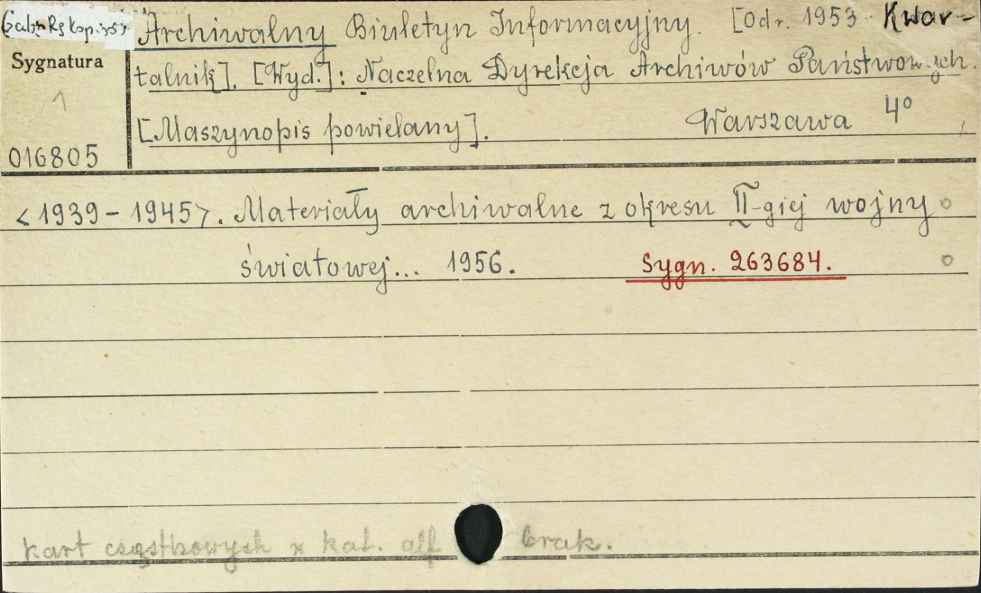 Archiwalny Biuletyn Informacyjny. [Od r. 1953 Kwar-
Sygnatura
talnik]. [Wyd.]: Naczelna Dyrekcja Archiwów Państwowych.
1
[Maszynopis powielany]. Warszawa 4°
016805
<1939-1945>. Materiały archiwalne z okresu II-giej wojny
światowej... 1956. Sygn. 263684.
kart cząstkowych w kat. alf brak.